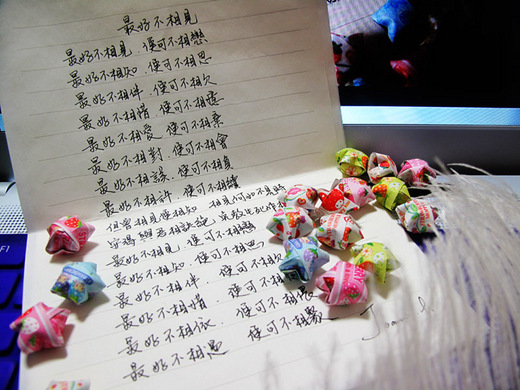 最好不相見
最好不相見,便可不相戀
最好不相知,便可不相思
最好不相伴,便可不相欠
最好不相惜,便可不相憶
最好不相愛,便可不相棄
最好不相對,便可不相會
最好不相誤,便可不相負
最好不相許,便可不相續
但曾相見便相知 相見何如不見時
安得與君相訣絕 免教生死作相
最好不相見,便可不相戀
最好不相知,便可不相思
最好不相伴,便可不相欠
最好不相惜,便可不相
最好不相依,便可不相
最好不相遇 便可不相聚
F1